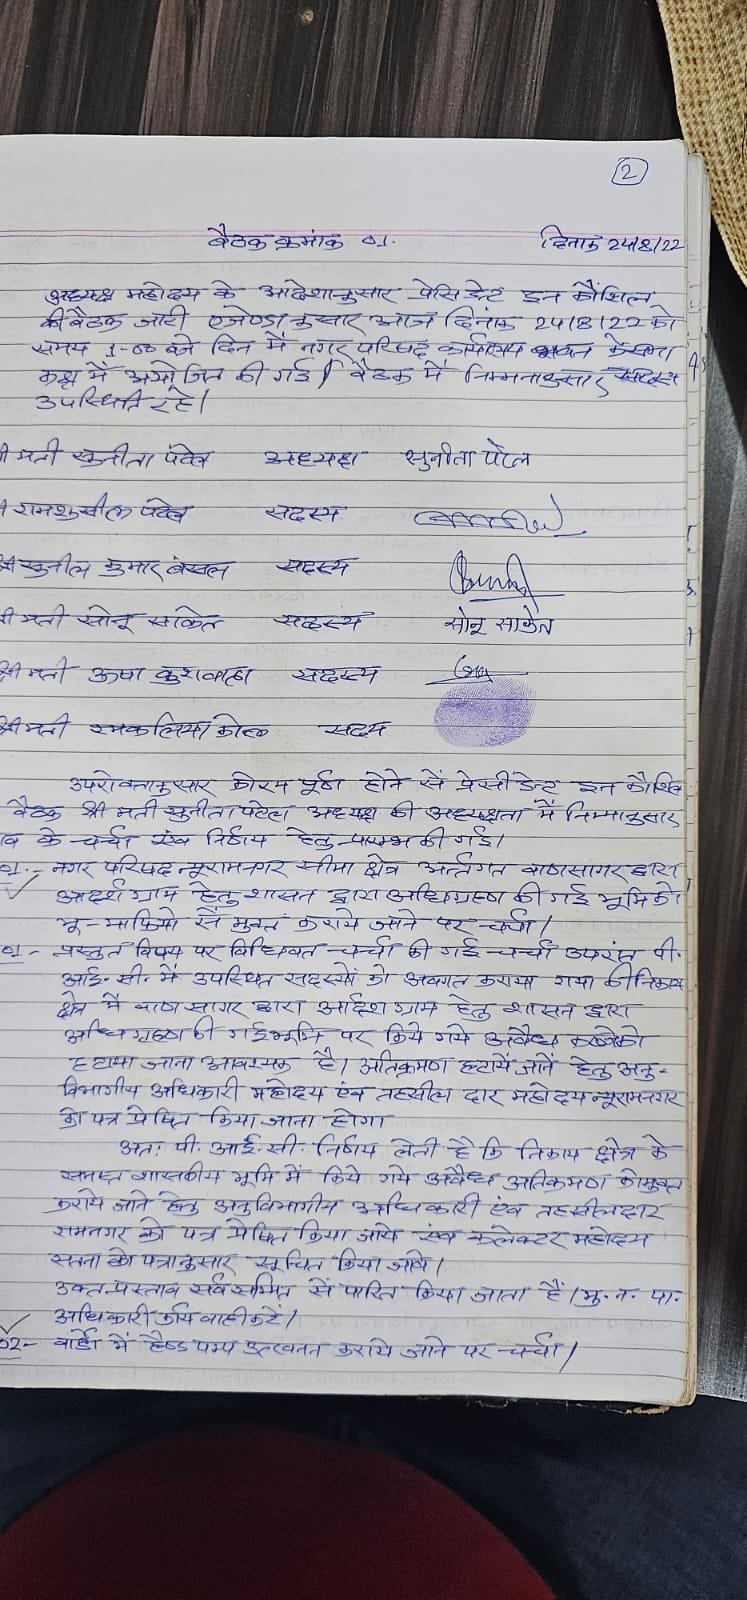 2
बैठक क्रमांक 01. दिनांक 24/8/22
अध्यक्ष महोदय के आदेशानुसार प्रेसिडेन्ट इन कौंशिल
की बैठक जारी एजेण्डानुसार आज दिनांक 24/8/22 को
समय 1-00 बजे दिन में नगर परिषद कार्यालय भवन के सभा
कक्ष में अयोजित की गई। बैठक में निम्मनानुसार सदस्य
उपस्थिति रहे।
मती सुनीता पटेल अध्यक्ष सुनीता पटेल
रामसुशील पटेल सदस्य
श्री सुनील कुमार बंसल सदस्य
मती सोनू साकेत सदस्य सोनू साकेत
श्रीमती ऊषा कुशवाहा सदस्य
श्रीमती रामकलिया कोल सदस्य
उपरोक्तानुसार कोरम पूर्ण होने से प्रेसीडेन्ट इन कौशिल
बैठक श्री मती सुनीता पटेल अध्यक्ष की अध्यक्षता में निम्नानुसार
के चर्चा एंव निर्णय हेतु प्रारम्भ की गई।
01- नगर परिषद न्यूरामनगर सीमा क्षेत्र अर्न्तगत वाणसागर द्वारा
आदर्श ग्राम हेतु शासन द्वारा अधिग्रहण की गई भूमि को
भू-माफियो से मुक्त कराये जाने पर चर्चा।
01- प्रस्तुत विषय पर विधिवत चर्चा की गई चर्चा उपरांत पी.
आई. सी. में उपस्थित सदस्यों को अवगत कराया गया की निकाय
क्षेत्र में वाण सागर द्वारा आर्दश ग्राम हेतु शासन द्वारा
अधिग्रहण की गई भूमि पर किये गये अवैध कब्जे को
हटाया जाना आवश्यक है। अतिक्रमण हटायें जानें हेतु अनु-
विभागीय अधिकारी महोदय एंव तहसील दार महोदय न्यूरामनगर
को पत्र प्रेषित किया जाना होगा
अत: पी. आई. सी. निर्णय लेती है कि निकाय क्षेत्र के
समस्त शासकीय भूमि में किये गये अवैध अतिक्रमण को मुक्त
कराये जाने हेतु अनुविभागीय अधिकारी एंव तहसीलदार
रामनगर को पत्र प्रेषित किया जाये एंव कलेक्टर महोदय
सतना को पत्रानुसार सूचित किया जावे।
उक्त प्रस्ताव सर्व सम्मित से पारित किया जाता हैं। मु. न. पा.
अधिकारी कार्यवाही करें।
02- वार्डो में हैण्ड पम्प उत्खनन कराये जाने पर चर्चा।